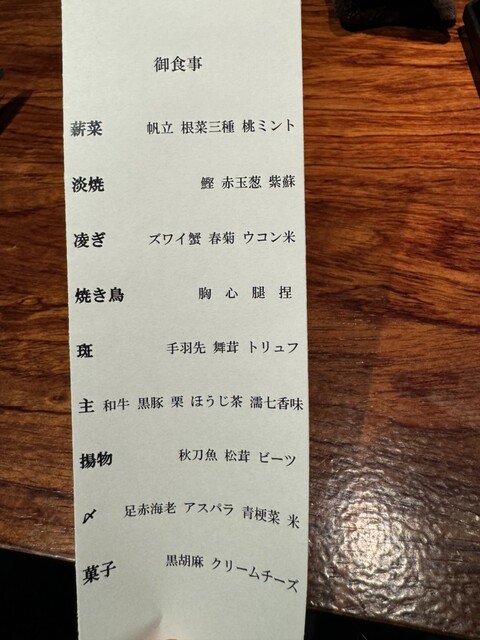 御食事
薪菜 帆立 根菜三種 桃ミント
淡焼 鰹 赤玉葱 紫蘇
凌ぎ ズワイ蟹 春菊 ウコン米
焼き鳥 胸 心 腿 捏
斑 手羽先 舞茸 トリュフ
主 和牛 黒豚 栗 ほうじ茶 濡七香味
揚物 秋刀魚 松茸 ビーツ
〆 足赤海老 アスパラ 青梗菜 米
菓子 黒胡麻 クリームチーズ